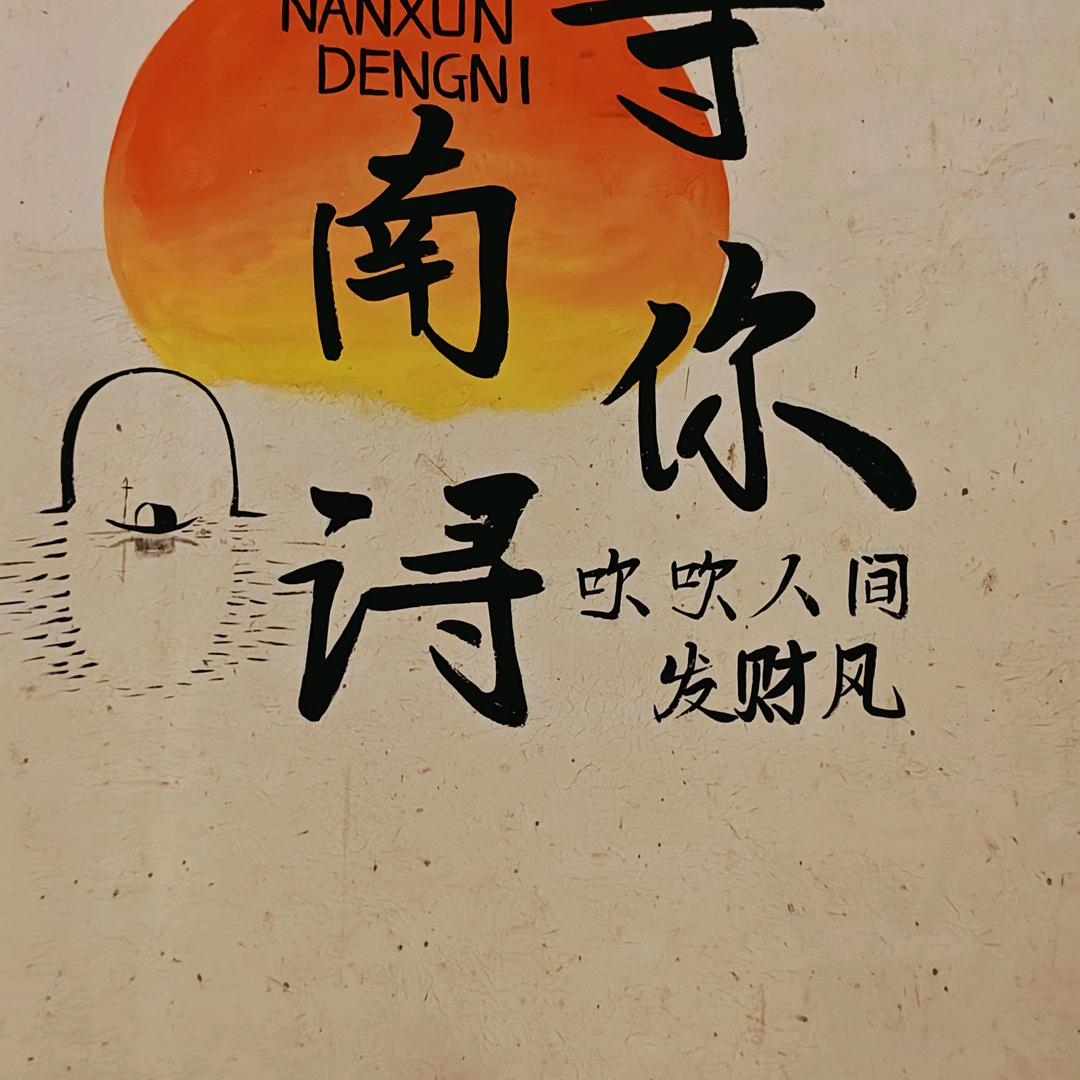 NANXUN
DENGNI
南浔
等你
吹吹人间
发财风